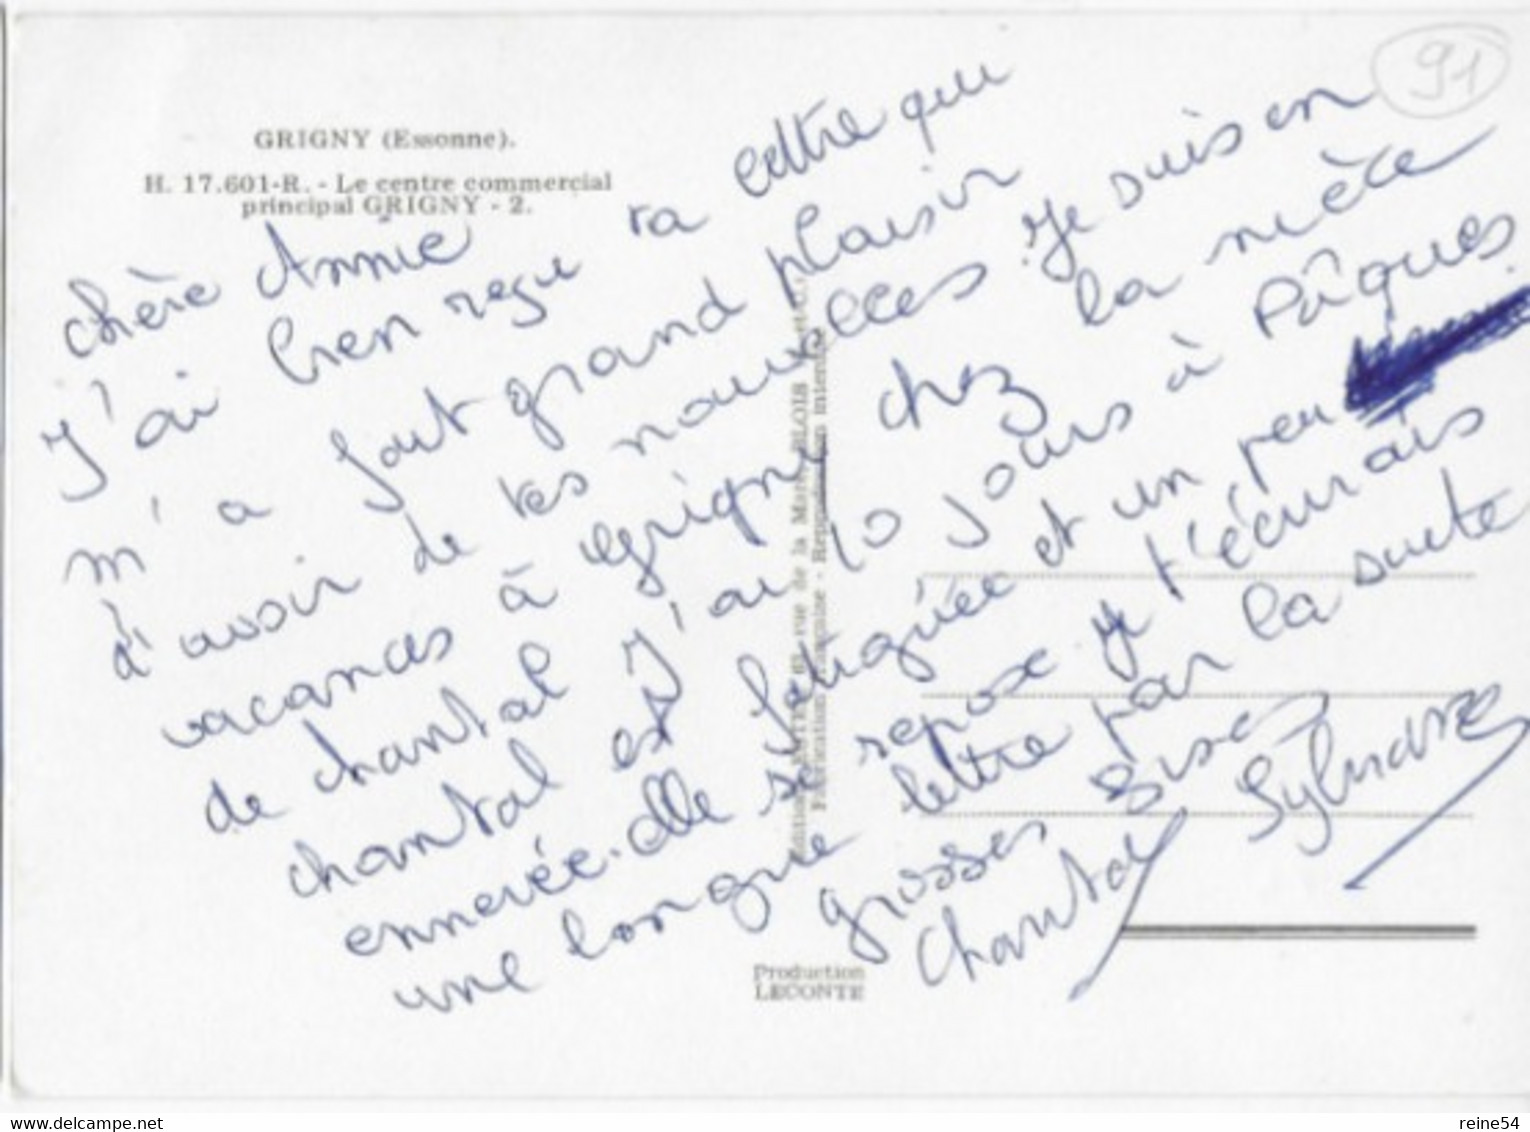 91
GRIGNY (Essonne).
H. 17.601-R. - Le centre commercial
principal GRIGNY - 2.
chère Annie
J'ai bien reçu ta lettre qui
m'a fait grand plaisir
d'avoir de tes nouvelles. Je suis en
vacances à Grigny chez la nièce
de chantal J'ai 10 jours à Pâques
chantal est fatiguée et un peu
ennervée. elle se repose. je t'écrirais
une longue lettre par la suite
grosses bises
Chantal Sylviane
Production
LECONTE
reine54